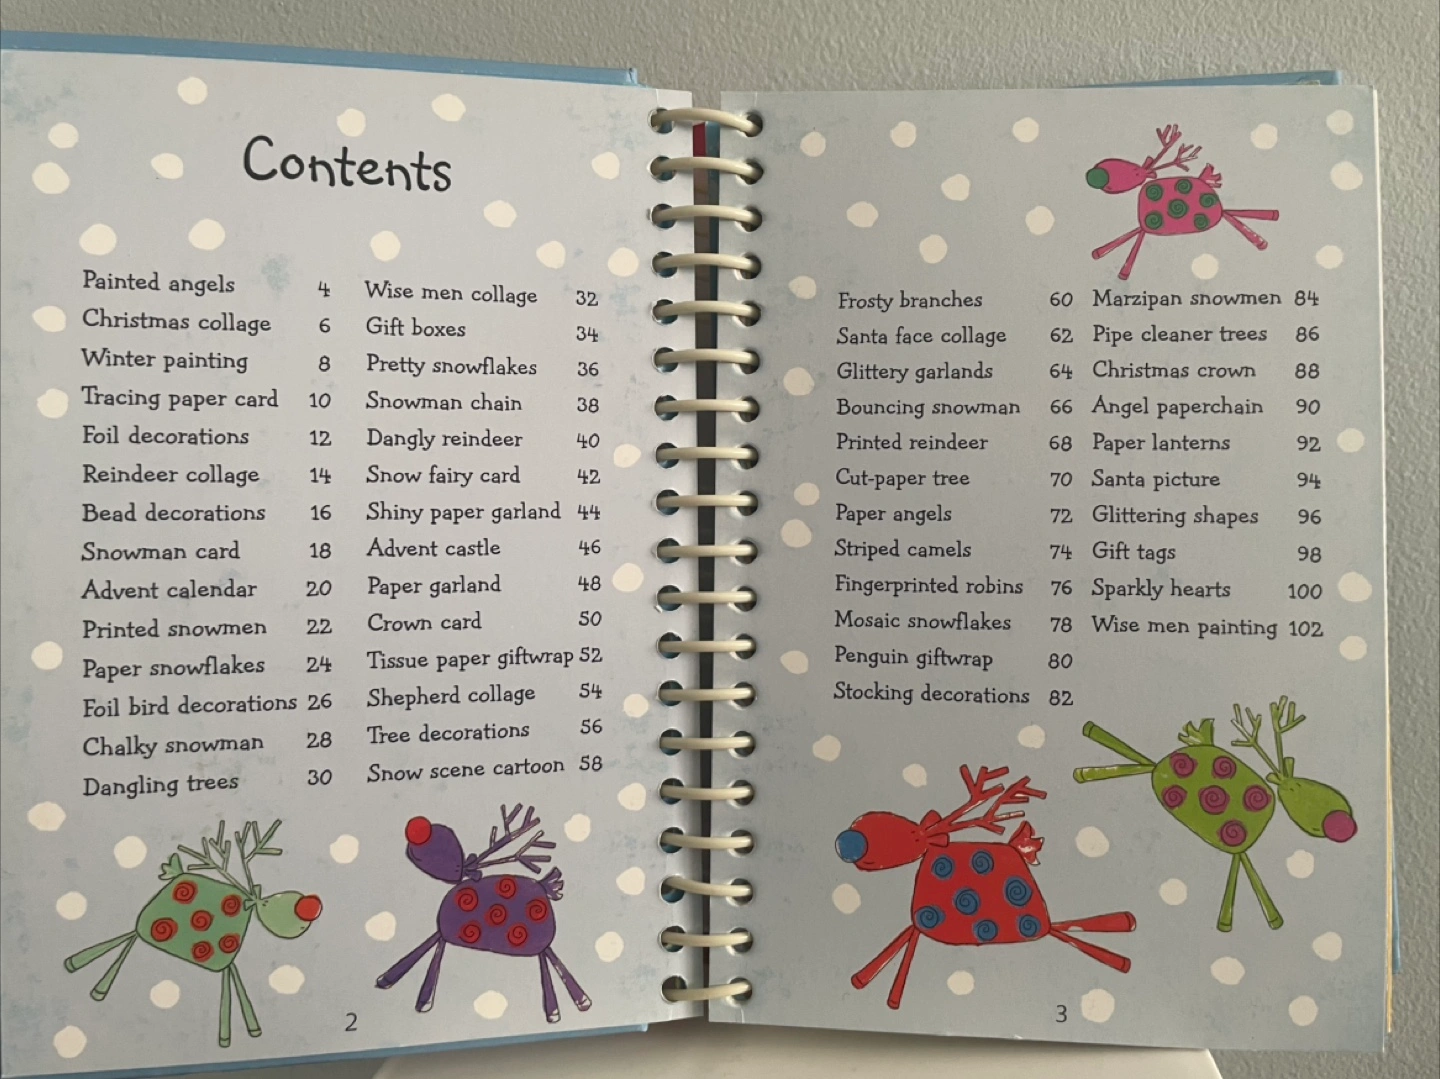 Contents
Painted angels 4
Christmas collage 6
Winter painting 8
Tracing paper card 10
Foil decorations 12
Reindeer collage 14
Bead decorations 16
Snowman card 18
Advent calendar 20
Printed snowmen 22
Paper snowflakes 24
Foil bird decorations 26
Chalky snowman 28
Dangling trees 30
Wise men collage 32
Gift boxes 34
Pretty snowflakes 36
Snowman chain 38
Dangly reindeer 40
Snow fairy card 42
Shiny paper garland 44
Advent castle 46
Paper garland 48
Crown card 50
Tissue paper giftwrap 52
Shepherd collage 54
Tree decorations 56
Snow scene cartoon 58
2
Frosty branches 60
Santa face collage 62
Glittery garlands 64
Bouncing snowman 66
Printed reindeer 68
Cut-paper tree 70
Paper angels 72
Striped camels 74
Fingerprinted robins 76
Mosaic snowflakes 78
Penguin giftwrap 80
Stocking decorations 82
Marzipan snowmen 84
Pipe cleaner trees 86
Christmas crown 88
Angel paperchain 90
Paper lanterns 92
Santa picture 94
Glittering shapes 96
Gift tags 98
Sparkly hearts 100
Wise men painting 102
3